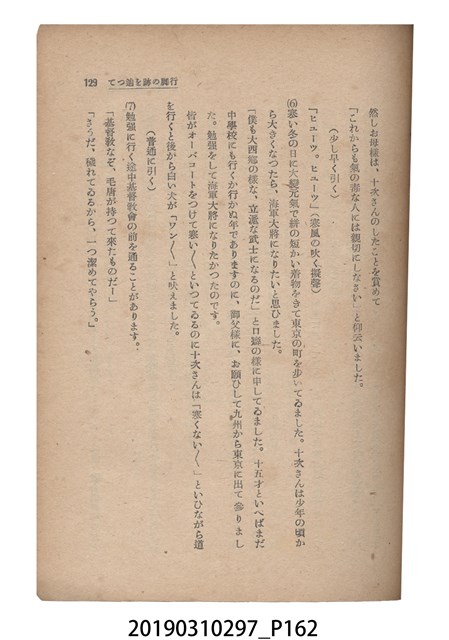 行脚の跡を追つて 129
然しお母様は、十次さんのしたことを賞めて
「これからも氣の毒な人には親切にしなさい」と仰云いました。
(少し早く引く)
『ヒューツ。ヒューツ』(寒風の吹く擬聲)
(6)寒い冬の日に大變元氣で絣の短かい着物をきて東京の町を步いてゐました。十次さんは少年の頃か
ら大きくなつたら、海軍大將になりたいと思ひました。
「僕も大西鄕の樣な、立派な武士になるのだ」と口癖の樣に申してゐました。十五才といへばまだ
中學校にも行くか行かぬ年でありますのに、御父樣に、お願ひして九州から東京に出て參りまし
た。勉强をして海軍大將になりたかつたのです。
皆がオーバコートをつけて寒い〳〵といつてゐるのに十次さんは「寒くない〳〵」といひながら道
を行くと後から白い犬が「ワン〳〵」と吠えました。
(普通に引く)
(7)勉强に行く途中基督敎會の前を通ることがあります。
「基督敎なぞ、毛唐が持つて來たものだ!」
「さうだ、穢れてゐるから、一つ潔めてやらう。」
20190310297_P162